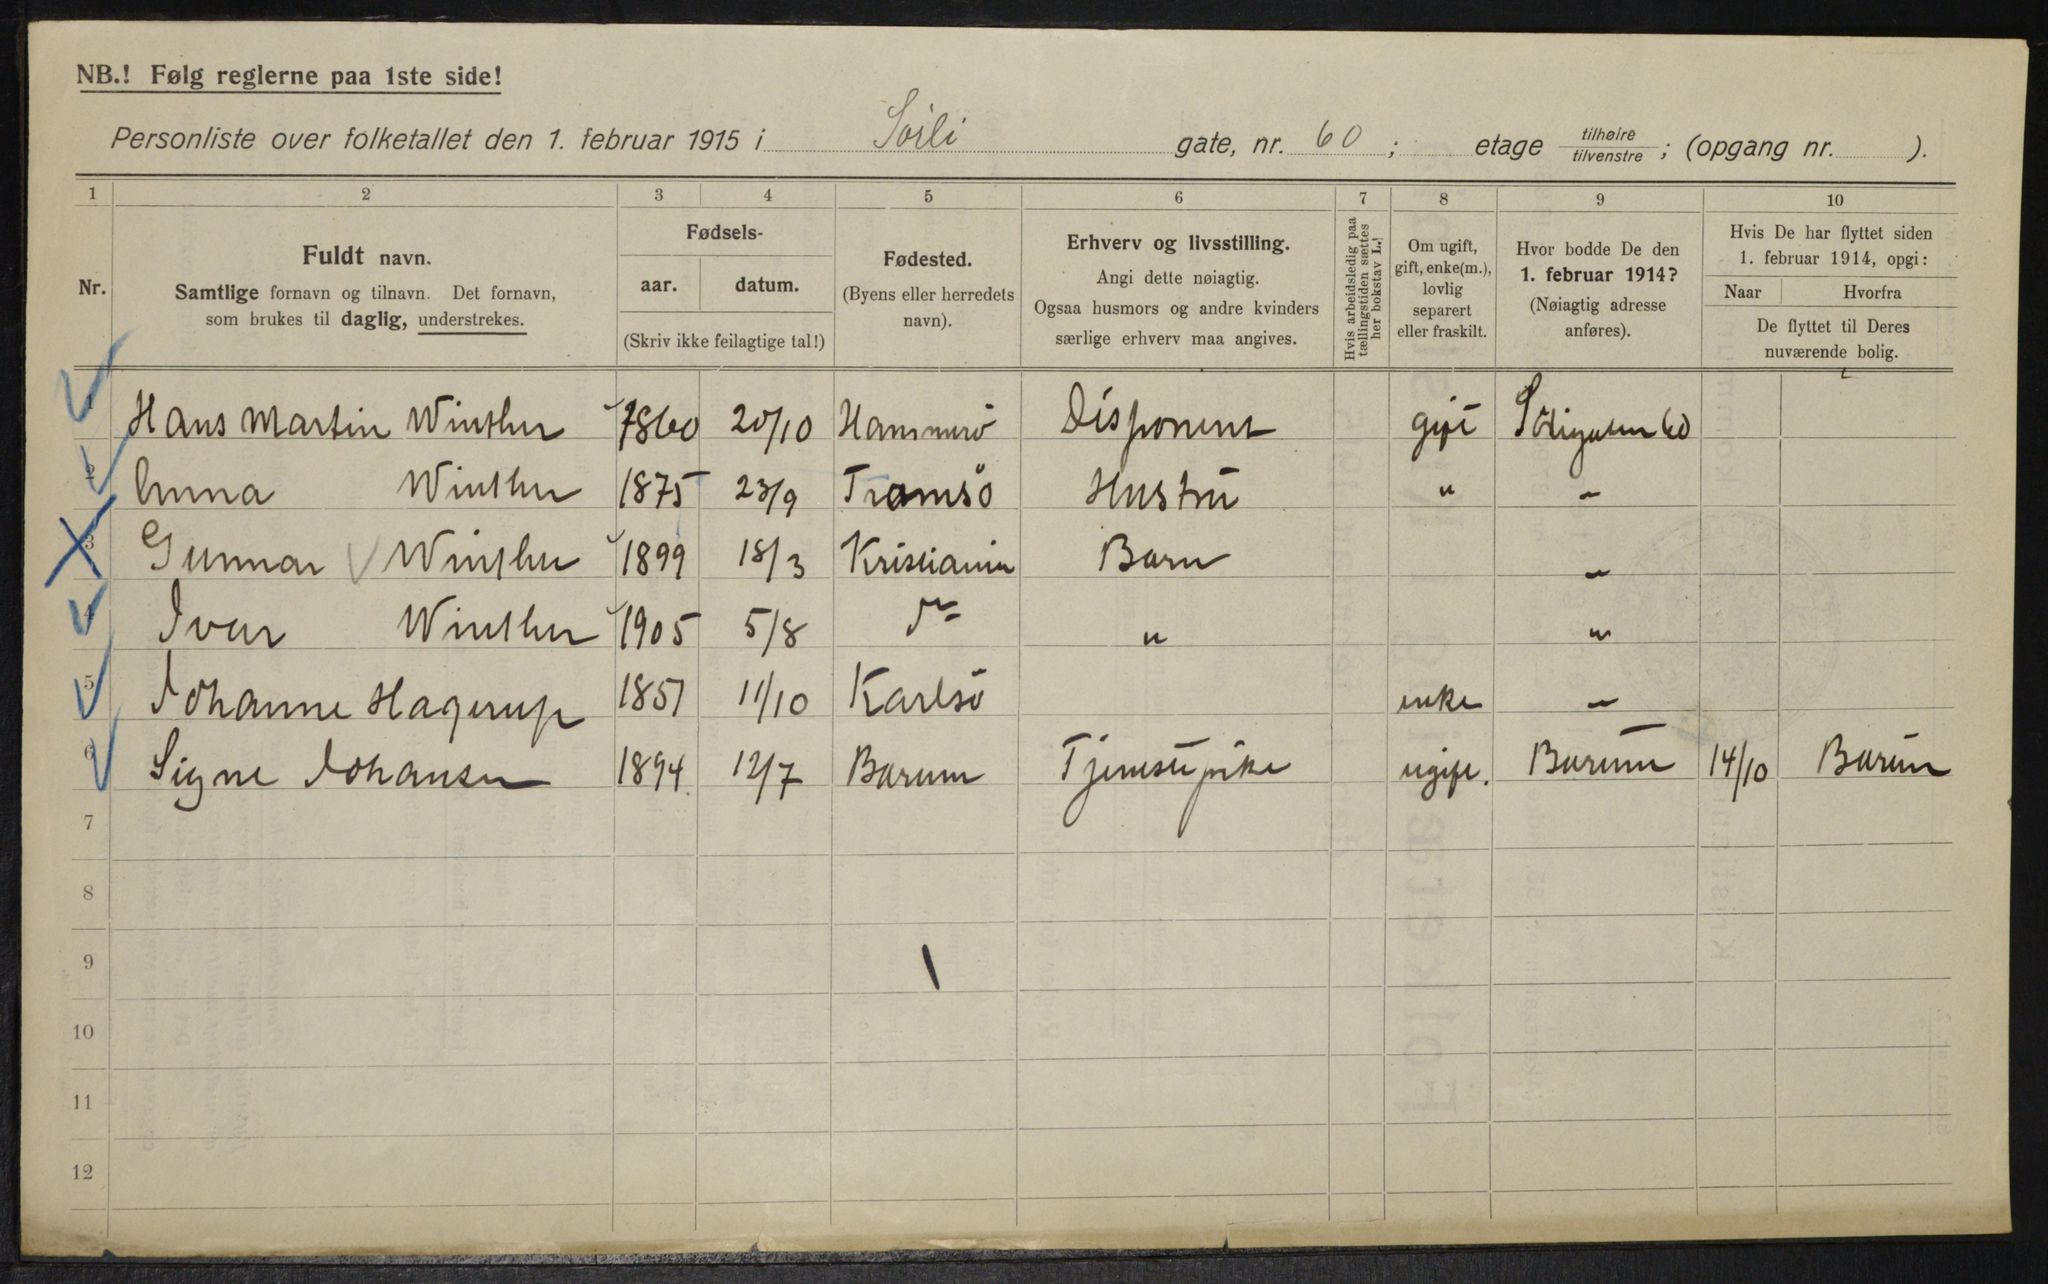 NB.! Følg reglerne paa 1ste side!
Personliste over folketallet den 1. februar 1915 i Sorli gate, nr. 60 ; etage tilhøire tilvenstre ; (opgang nr. ).
1 2 3 4 5 6 7 8 9 10
Nr.
Fuldt navn.
Samtlige fornavn og tilnavn. Det fornavn,
som brukes til daglig, understrekes.
Fødsels-
aar. datum.
(Skriv ikke feilagtige tal!)
Fødested.
(Byens eller herredets
navn).
Erhverv og livsstilling.
Angi dette nøiagtig.
Ogsaa husmors og andre kvinders
særlige erhverv maa angives.
Hvis arbeidsledig paa
tællingstiden sættes
her bokstav L.!
Om ugift,
gift, enke(m.),
lovlig
separert
eller fraskilt.
Hvor bodde De den
1. februar 1914?
(Nøiagtig adresse
anføres).
Hvis De har flyttet siden
1. februar 1914, opgi:
Naar Hvorfra
De flyttet til Deres
nuværende bolig.
1 Hans Martin Winther 1860 20/10 Hammerö Disponent gift Sörligaten 60
2 Anna Winther 1875 23/9 Tromsö Hustru " "
3 Gunnar Winther 1899 18/3 Kristiania Barn "
4 Ivar Winther 1905 5/8 do " "
5 Johanne Hagerup 1851 11/10 Karlsö enke "
6 Signe Johansen 1894 12/7 Barum Tjenestepike ugift. Barum 14/10 Barum
7
8
9
10
11
12